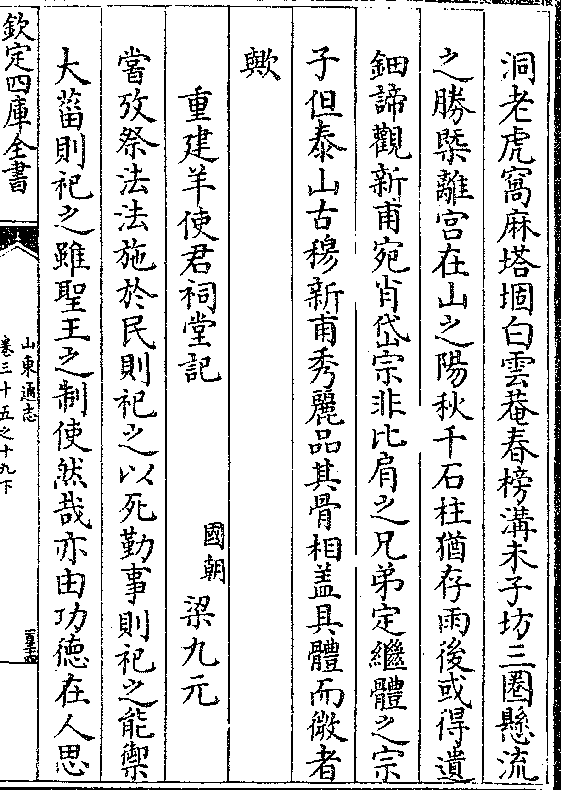 洞老虎窩麻塔堌白雲菴春榜溝未子坊三圈懸流
之勝槩離宮在山之陽秋千石柱猶存雨後或得遺
鈿諦觀新甫宛肖岱宗非比肩之兄弟定繼體之宗
子但泰山古穆新甫秀麗品其骨相盖具體而微者
歟
重建羊使君祠堂記
國朝梁九元
嘗攷祭法法施於民則祀之以死勤事則祀之能禦
大菑則祀之雖聖王之制使然哉亦由功徳在人思
欽定四庫全書
山東通志
卷三十五之十九下